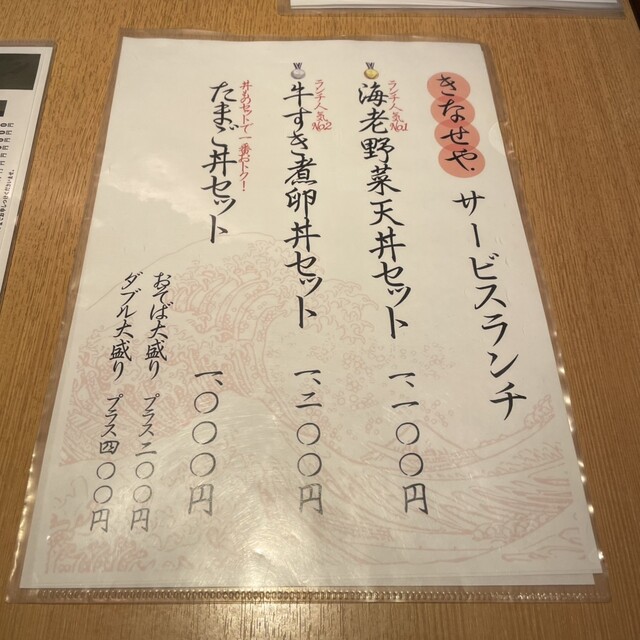 きなせや
サービスランチ
ランチ人気No.1
海老野菜天丼セット 一、一〇〇円
ランチ人気No.2
牛すき煮卵丼セット 一、二〇〇円
丼ものセットで一番おトク！
たまご丼セット 一、〇〇〇円
おそば大盛り プラス二〇〇円
ダブル大盛り プラス四〇〇円